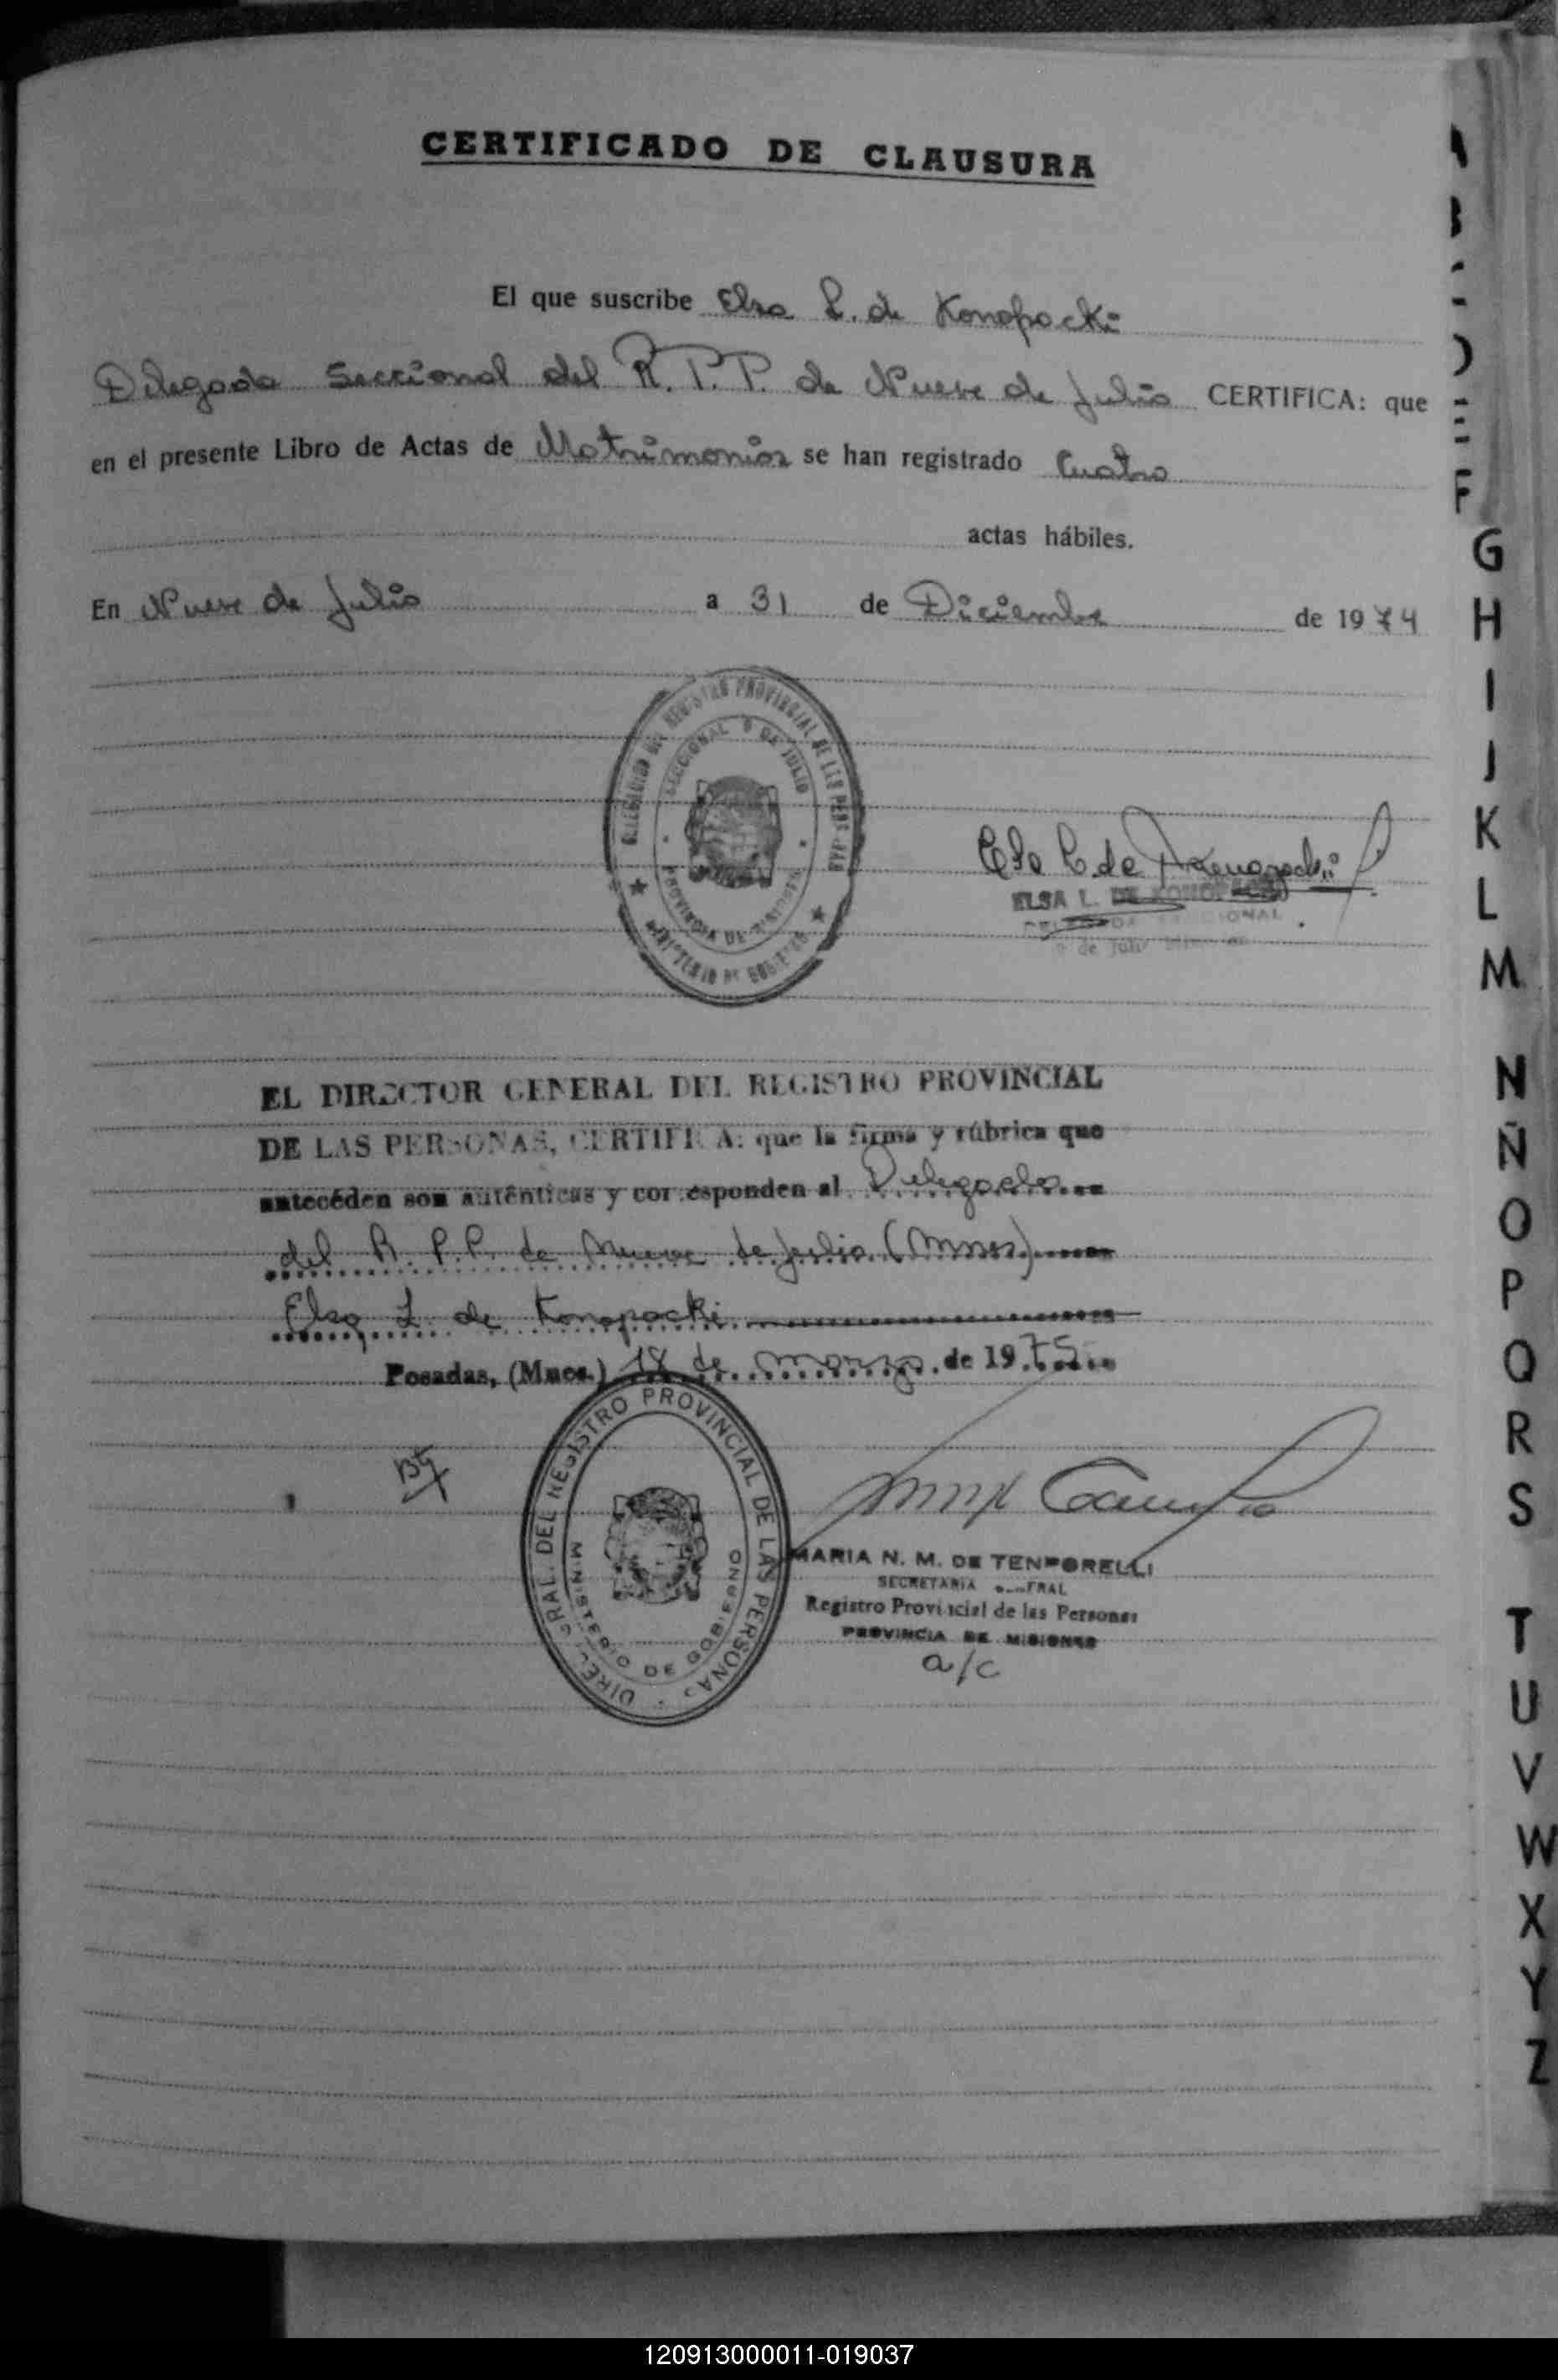 CERTIFICADO DE CLAUSURA
El que suscribe Elsa L. de Konopacki
Delegada Seccional del R.P.P. de Nueve de Julio CERTIFICA: que
en el presente Libro de Actas de Matrimonios se han registrado Cuatro
actas hábiles.
En Nueve de Julio a 31 de Diciembre de 1974
DELEGACION DEL REGISTRO PROVINCIAL DE LAS PERSONAS
SECCIONAL 9 DE JULIO
PROVINCIA DE MISIONES
MINISTERIO DE GOBIERNO
Elsa L. de Konopacki
ELSA L. DE KONOPACKI
DELEGADA SECCIONAL
9 de Julio
EL DIRECTOR GENERAL DEL REGISTRO PROVINCIAL
DE LAS PERSONAS, CERTIFICA: que la firma y rúbrica que
antecéden son auténticas y corresponden al Delegada
del R.P.P. de Nueve de Julio (Mnes)
Elsa L. de Konopacki
Posadas, (Mnes.) 18 de marzo de 1975
DIREC. GRAL. DEL REGISTRO PROVINCIAL DE LAS PERSONAS
MINISTERIO DE GOBIERNO
MARIA N. M. DE TEMPORELLI
SECRETARIA GENERAL
Registro Provincial de las Personas
PROVINCIA DE MISIONES
a/c
F
G
H
I
J
K
L
M
N
Ñ
O
P
Q
R
S
T
U
V
W
X
Y
Z
120913000011-019037